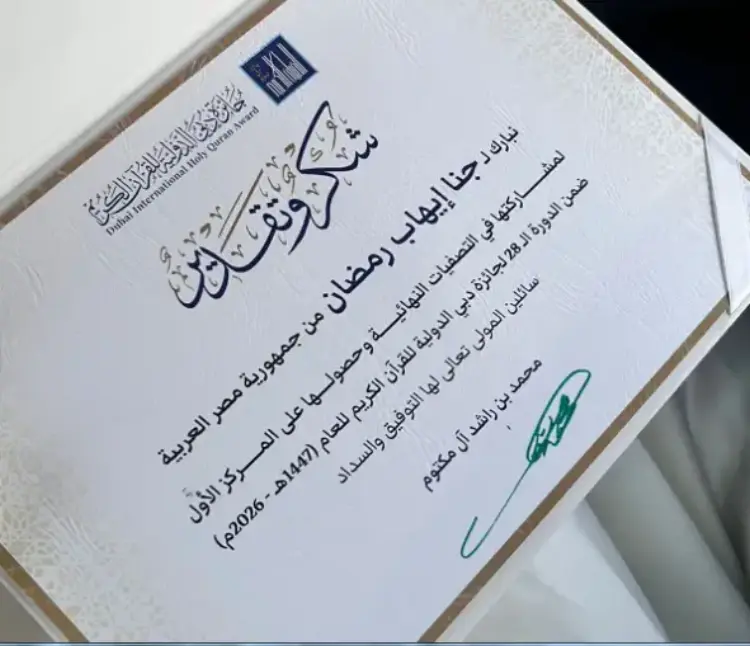 جائزة دبي الدولية للقرآن الكريم
Dubai International Holy Quran Award
شكر وتقدير
نبارك لـ جنا إيهاب رمضان من جمهورية مصر العربية
لمشاركتها في التصفيات النهائية وحصولها على المركز الأول
ضمن الدورة الـ 28 لجائزة دبي الدولية للقرآن الكريم للعام (1447هـ - 2026م)
سائلين المولى تعالى لها التوفيق والسداد
محمد بن راشد آل مكتوم